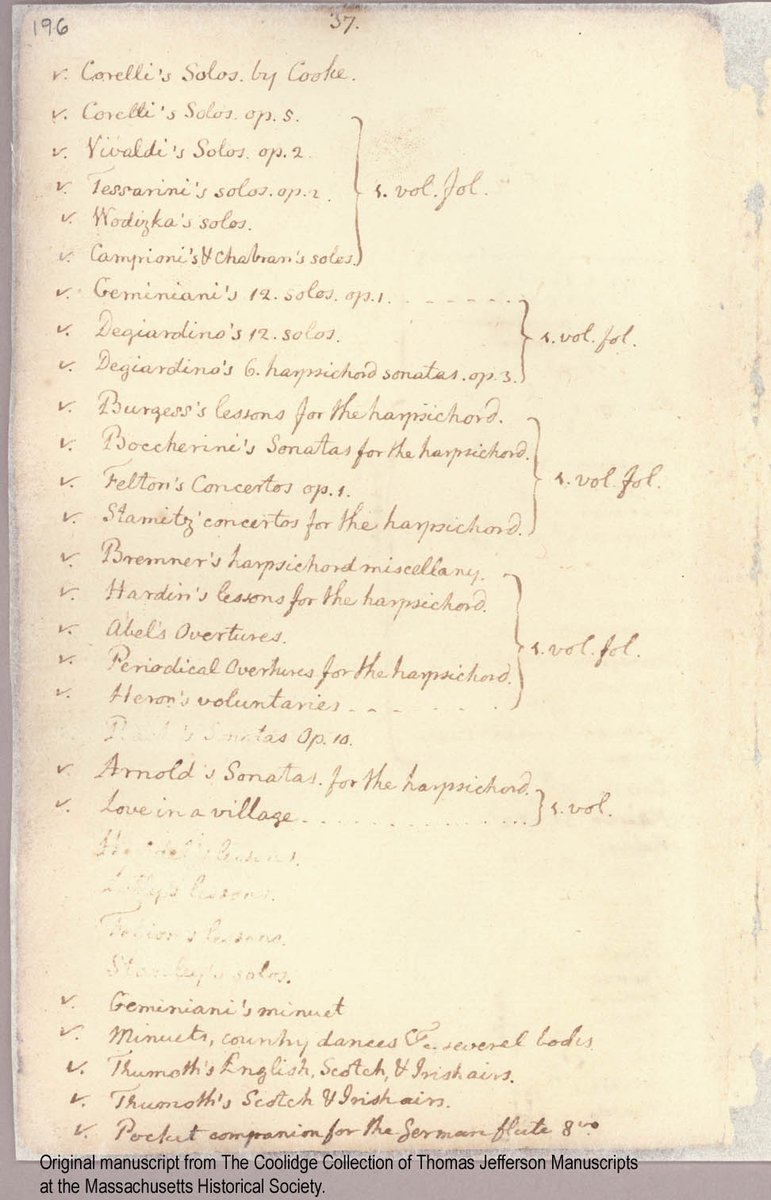 196
37.
v. Corelli's Solos. by Cooke.
v. Corelli's Solos. op. 5.
v. Vivaldi's Solos. op. 2
v. Tessarini's solos. op. 2. } 1. vol. fol.
v. Wodizka's solos.
v. Campioni's & Chabran's solos.
v. Geminiani's 12. solos. op. 1.
v. Degiardino's 12. solos. } 1. vol. fol.
v. Degiardino's 6. harpsichord sonatas. op. 3.
v. Burgess's lessons for the harpsichord.
v. Boccherini's Sonatas for the harpsichord.
v. Felton's Concertos op. 1. } 1. vol. fol.
v. Stamitz' concertos for the harpsichord.
v. Bremner's harpsichord miscellany.
v. Hardin's lessons for the harpsichord.
v. Abel's Overtures. } 1. vol. fol.
v. Periodical Overtures for the harpsichord.
v. Heron's voluntaries
Bach's Sonatas Op. 10.
v. Arnold's Sonatas. for the harpsichord.
v. Love in a village } 1. vol.
lessons.
lessons.
lessons.
Stanley's solos.
v. Geminiani's minuet
v. Minuets, country dances &c. several books
v. Thumoth's English, Scotch, & Irish airs.
v. Thumoth's Scotch & Irish airs.
v. Pocket companion for the German flute 8vo
Original manuscript from The Coolidge Collection of Thomas Jefferson Manuscripts
at the Massachusetts Historical Society.